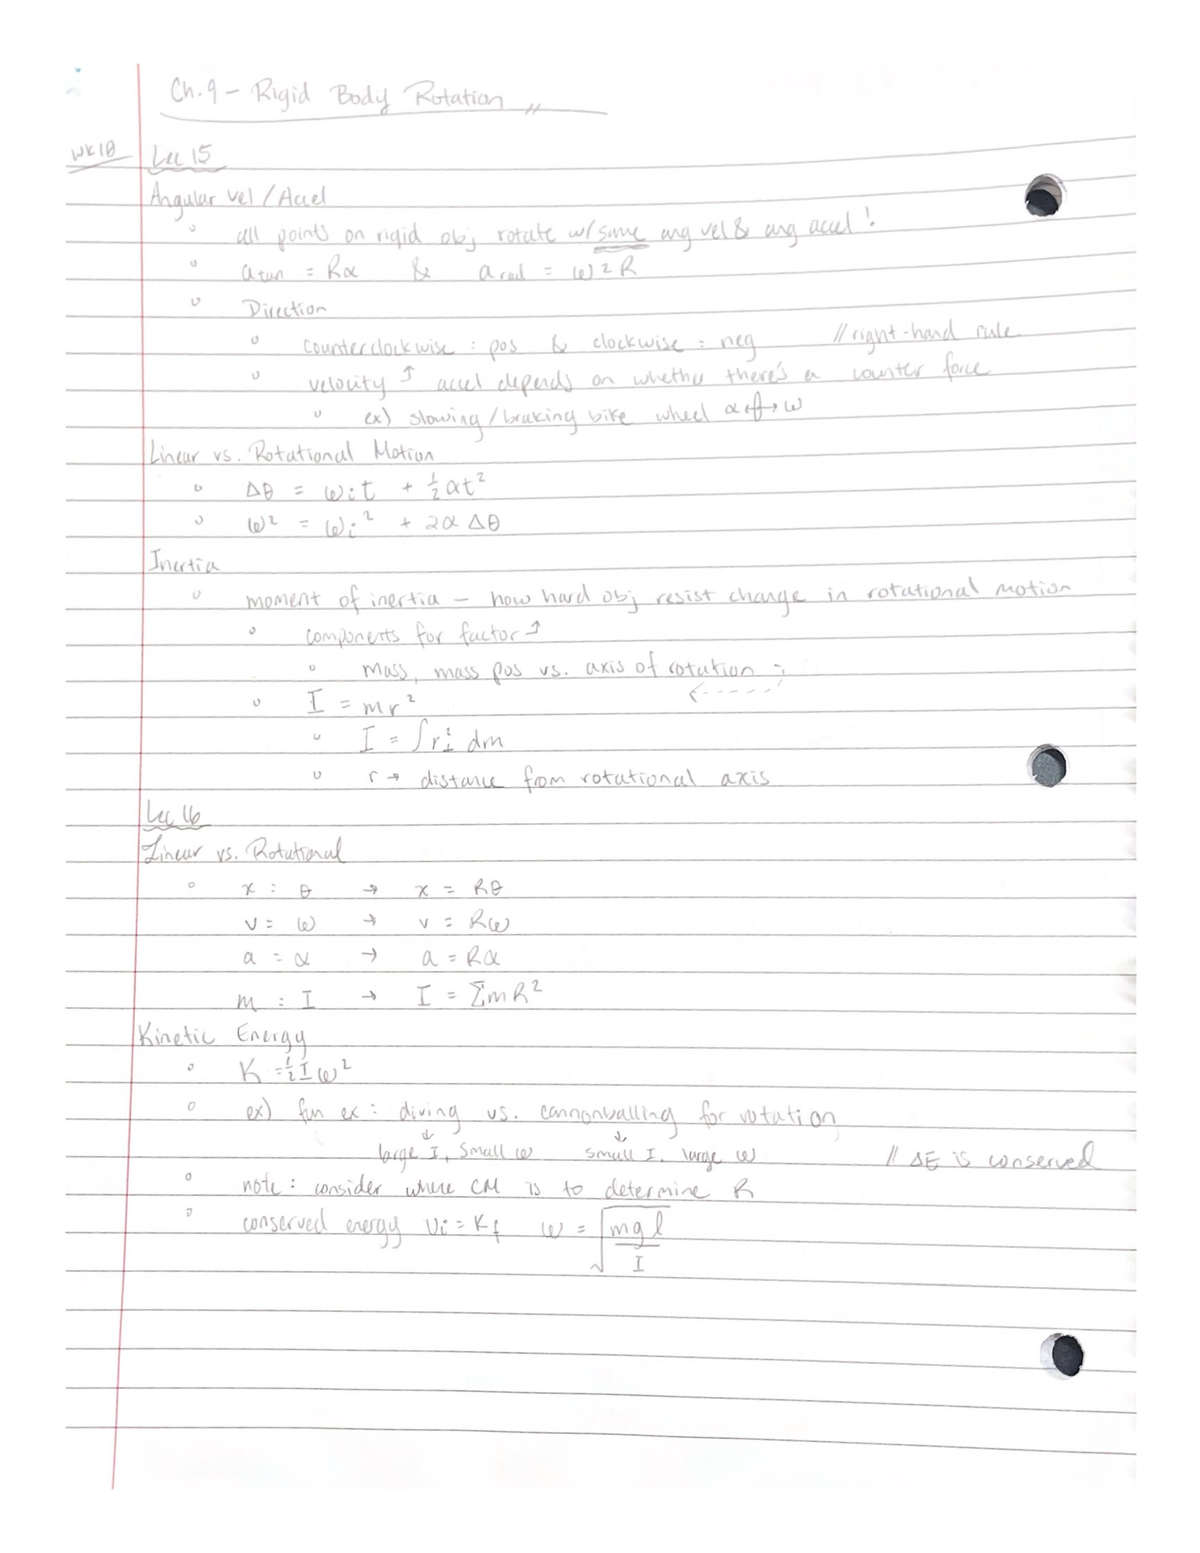 Ch. 9 - Rigid Body Rotation
WK10 Lec 15
Angular vel / Accel
all points on rigid obj rotate w/ same ang vel & ang accel!
a tan = Rα & a rad = ω²R
Direction
counterclockwise : pos & clockwise : neg // right-hand rule
velocity ↑ accel depends on whether there's a counter force
ex) slowing / braking bike wheel α ω
Linear vs. Rotational Motion
Δθ = ωit + ½αt²
ω² = ωi² + 2αΔθ
Inertia
moment of inertia - how hard obj resist change in rotational motion
components for factor ↑
mass, mass pos vs. axis of rotation
I = mr²
I = ∫r²⊥ dm
r → distance from rotational axis
Lec 16
Linear vs. Rotational
x : θ → x = Rθ
v = ω → v = Rω
a = α → a = Rα
m : I → I = ΣmR²
Kinetic Energy
K = ½Iω²
ex) fun ex : diving vs. cannonballing for rotation
↓ ↓
large I, small ω small I, large ω // ΔE is conserved
note : consider where CM is to determine R
conserved energy Ui = Kf ω = √(mgl/I)